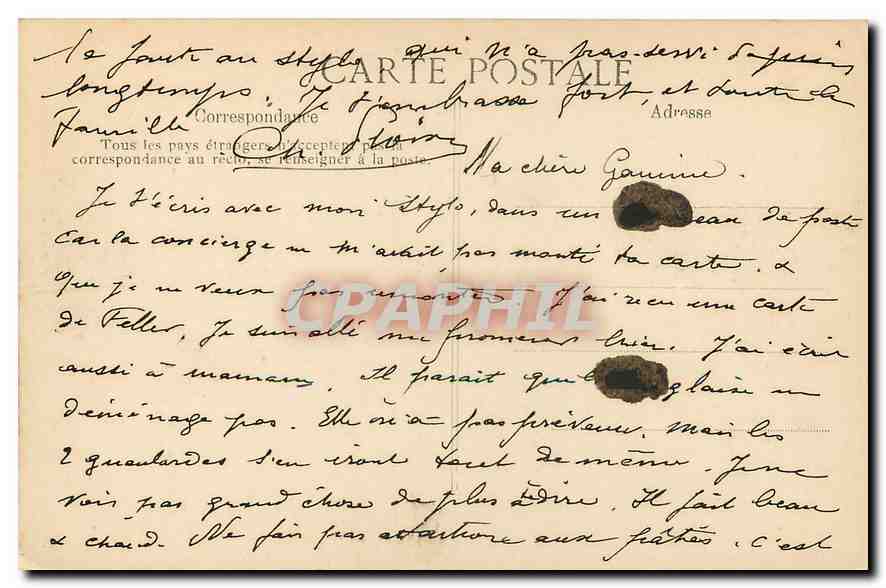 la faute au stylo qui n'a pas servi depuis
CARTE POSTALE
longtemps. Je t'embrasse fort, et toute la
famille
Correspondance
Adresse
Tous les pays étrangers n'acceptent pas la
correspondance au recto, se renseigner à la poste.
Ma chère Gamine.
Je t'écris avec mon stylo, dans un eau de poste
car la concierge ne m'avait pas monté ta carte. &
que je ne veux pas remonter. J'ai reçu une carte
de Feller. Je suis allé me promener hier. J'ai écrit
aussi à maman. Il parait que l glaise ne
déménage pas. Elle n'a pas prévenu. Mais les
2 gueulardes s'en iront tout de même. Je ne
vois pas grand chose de plus à te dire. Il fait beau
& chaud. Ne fais pas attention aux pâtés. C'est
CPAPHIL